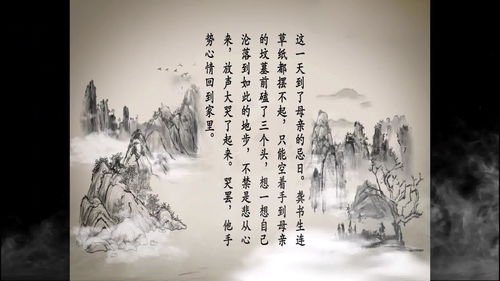 这一天到了母亲的忌日。龚书生连
草纸都摆不起，只能空着手到母亲
的坟墓前磕了三个头，想一想自己
沦落到如此的地步，不禁是悲从心
来，放声大哭了起来。哭罢，他手
势心情回到家里。